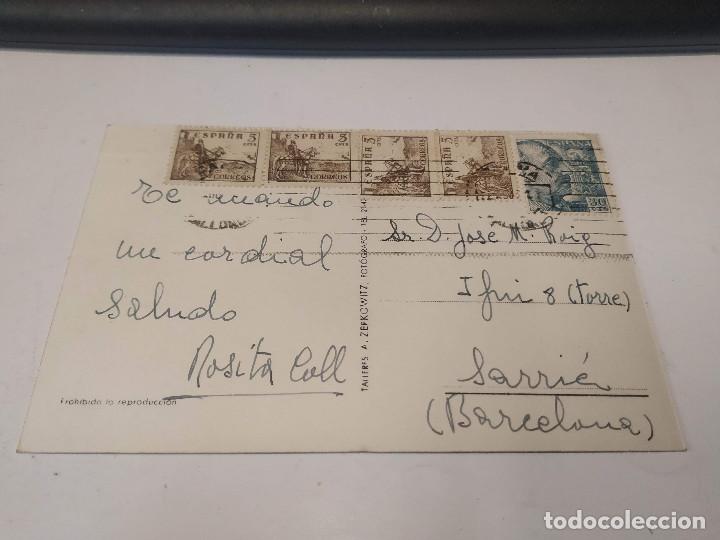 ESPAÑA 5 CTS
CORREOS
ESPAÑA 5 CTS
CORREOS
ESPAÑA 5 CTS
CORREOS
ESPAÑA 5
CORREOS
30 CTS
Te mando
un cordial
saludo
Rosita Coll
Prohibida la reproducción
TALLERES A. ZERKOWITZ, FOTÓGRAFO
Sr. D. José Mª Roig
8 (torre)
Sarriá
(Barcelona)
todocoleccion